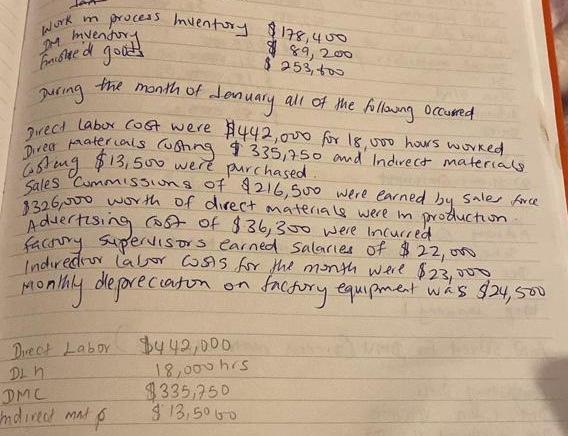 Work in process Inventory $178,400
DM Inventory $ 89,200
finished goods $ 253,600
During the month of January all of the following occurred
Direct labor cost were $442,000 for 18,000 hours worked
Direct materials costing $ 335,750 and Indirect materials
Costing $13,500 were purchased.
Sales commissions of $216,500 were earned by sales force
$326,000 worth of direct materials were in production.
Advertising cost of $36,300 were incurred
factory supervisors earned salaries of $22,000
Indirect labor costs for the month were $23,000
Monthly depreciation on factory equipment was $24,500
Direct Labor $442,000
DLh 18,000 hrs
DMC $335,750
Indirect mat $13,500